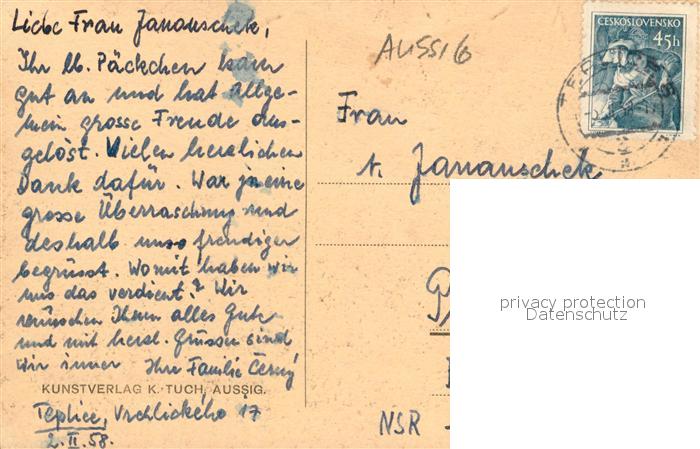 Liebe Frau Jananschek,
Ihr lb. Päckchen kam
gut an und hat allge-
mein grosse Freude aus-
gelöst. Vielen herzlichen
Dank dafür. War ja eine
grosse Überraschung und
deshalb umso freudiger
begrüsst. Womit haben wir
uns das verdient? Wir
wünschen Ihnen alles Gute
und mit herzl. Grüssen sind
wir immer Ihre Familie Černý
KUNSTVERLAG K. TUCH, AUSSIG.
Teplice, Vrchlického 17
2.II.58.
AUSSIG
ČESKOSLOVENSKO
45h
Frau
A. Jananschek
NSR
privacy protection
Datenschutz